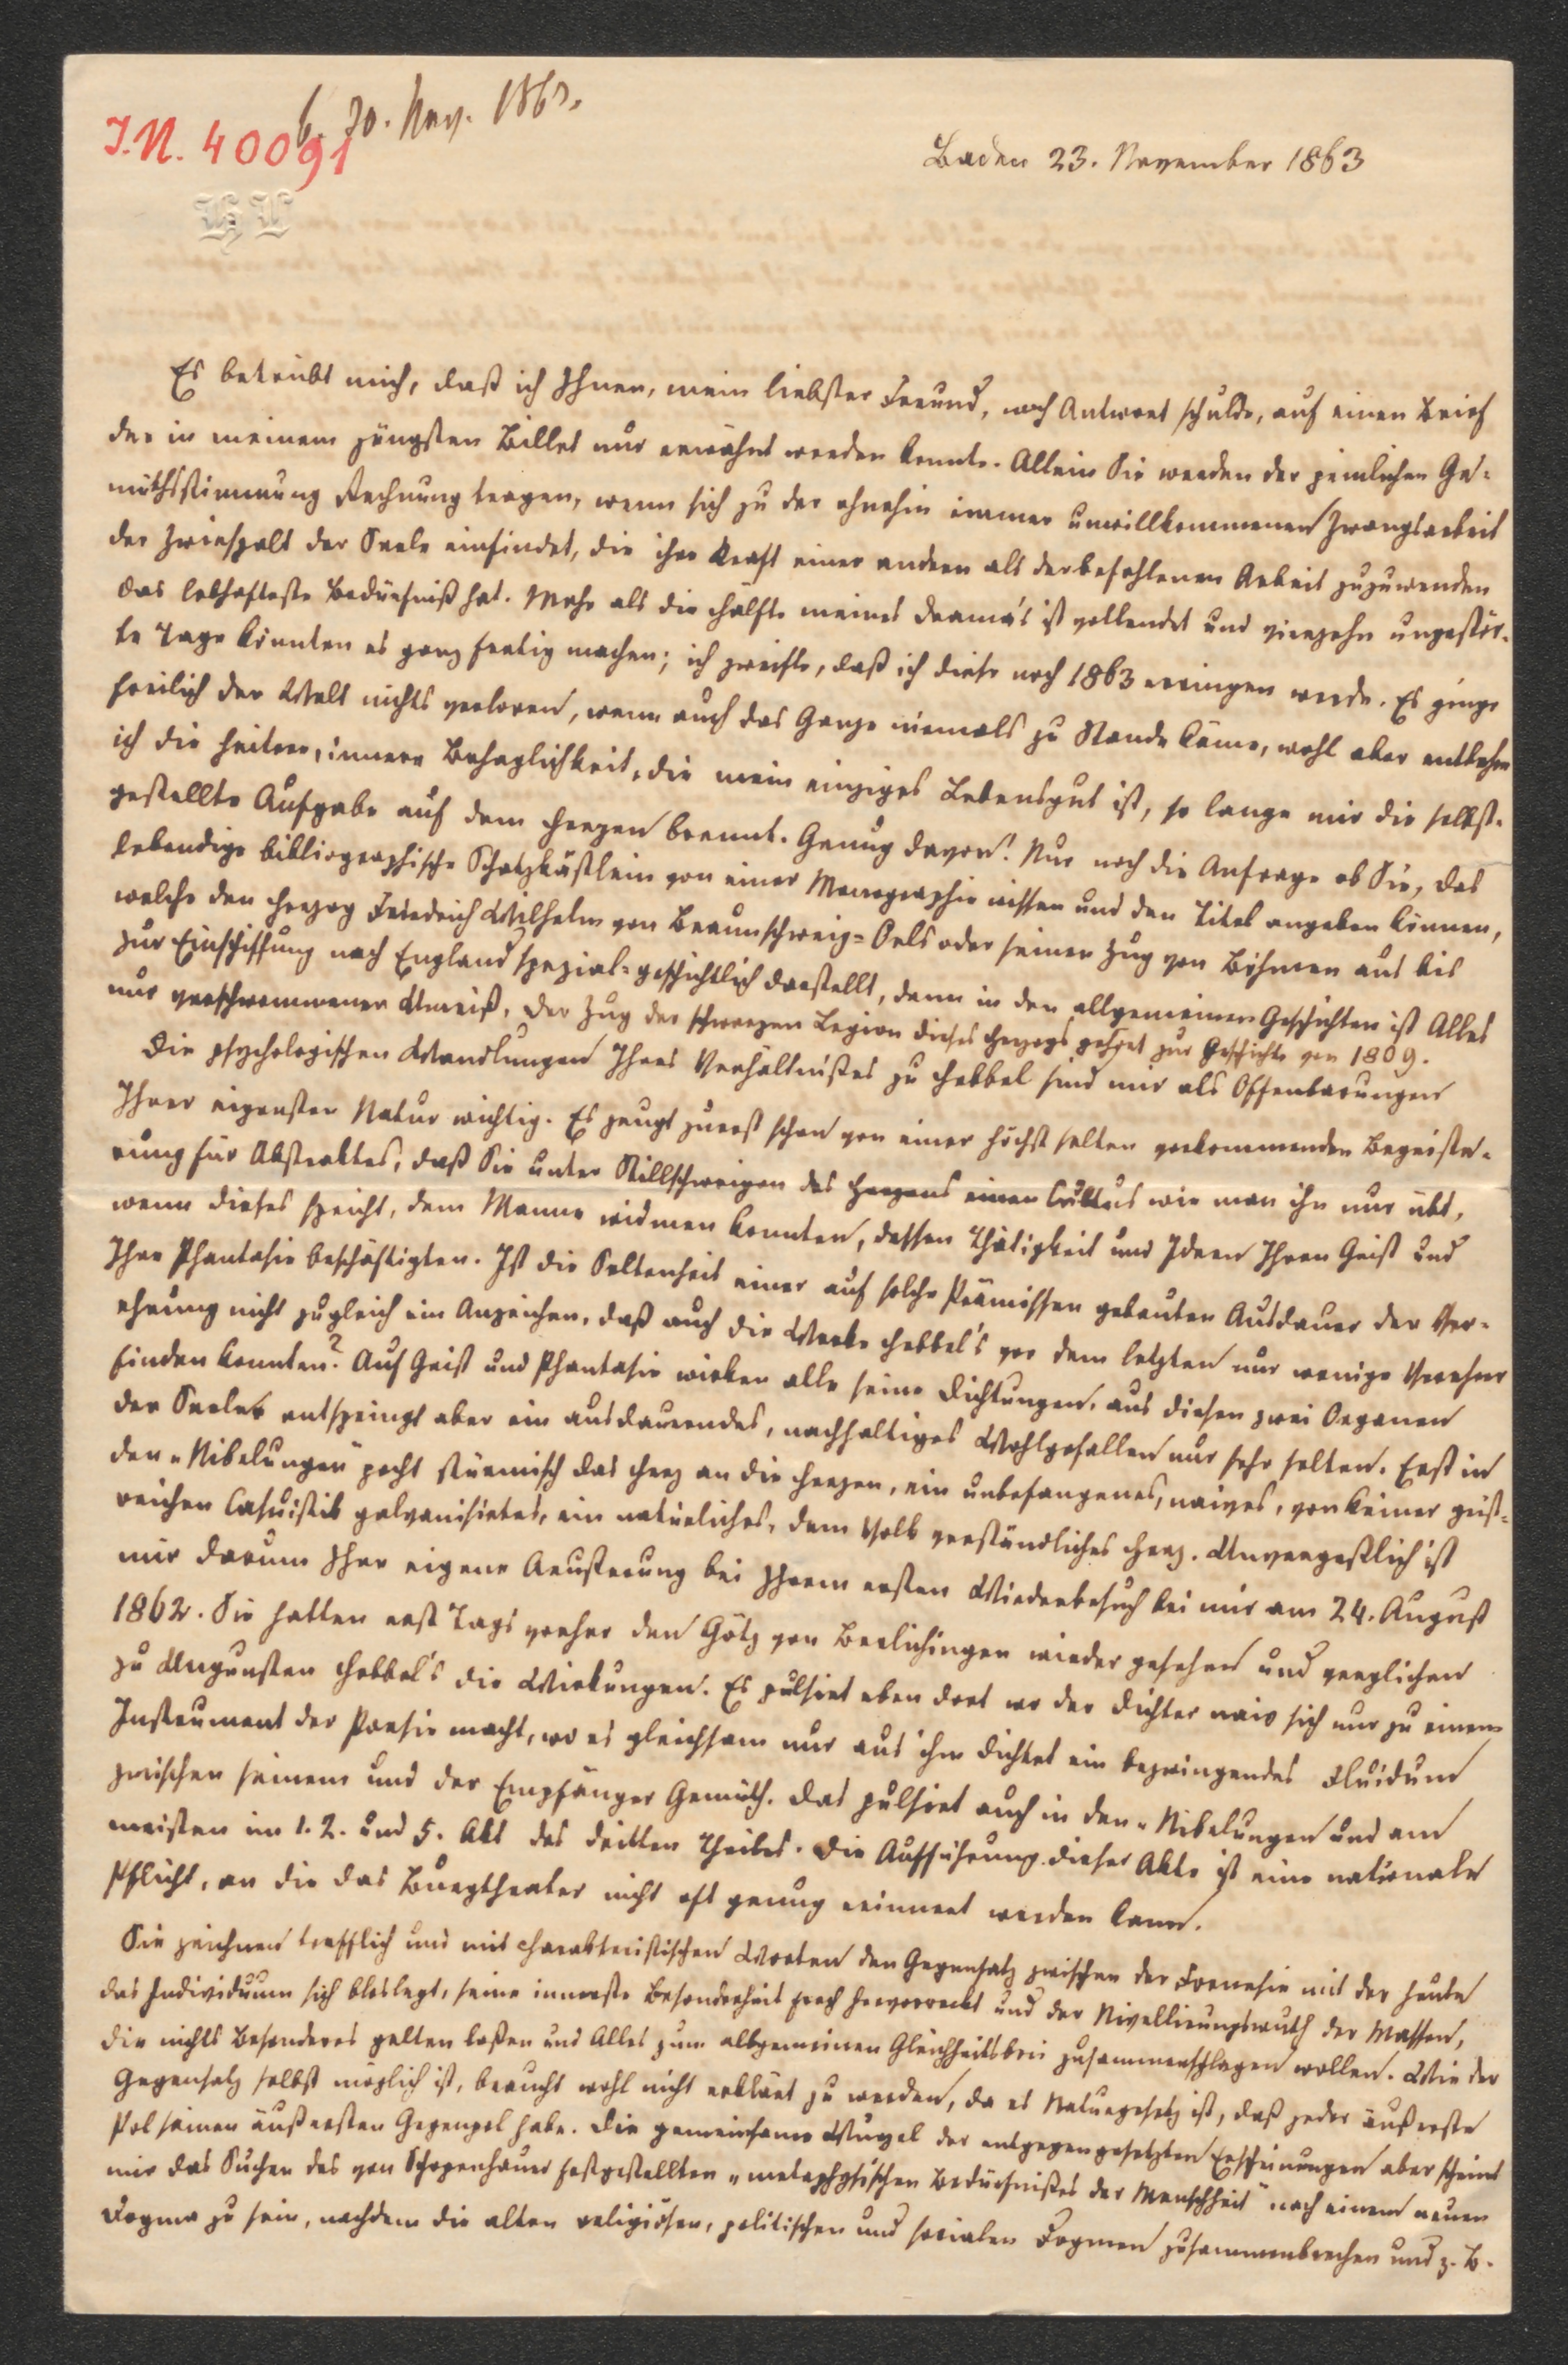 b. 30. Nov. 1863.
J.N. 40091
Baden 23. November 1863
HL
Es betrübt mich, daß ich Ihnen, mein liebster Freund, noch Antwort schulde, auf einen Brief
der in meinem jüngsten Billet nur erwähnt werden konnte. Allein Sie werden der peinlichen Ge-
müthsstimmung Rechnung tragen, wenn sich zu der ohnehin immer unwillkommenen Zwangsarbeit
der Zwiespalt der Seele einfindet, die ihre Kraft einer andern als der befohlenen Arbeit zuzuwenden
das lebhafteste Bedürfniß hat. Mehr als die Hälfte meines Drama's ist vollendet und vierzehn ungestör-
te Tage könnten es ganz fertig machen; ich zweifle, daß ich diese noch 1863 erringen werde. Es ginge
freilich der Welt nichts verloren, wenn auch das Ganze niemals zu Stande käme, wohl aber entbehre
ich die heitere, innere Behaglichkeit, die mein einziges Lebensgut ist, so lange mir die selbst-
gestellte Aufgabe auf dem Herzen brennt. Genug davon! Nur noch die Anfrage ob Sie, das
lebendige bibliographische Schatzkästlein von einer Monographie wissen und den Titel angeben können,
welche den Herzog Friedrich Wilhelm von Braunschweig-Oels oder seinen Zug von Böhmen aus bis
zur Einschiffung nach England spezial-geschichtlich darstellt, denn in den allgemeinen Geschichten ist Alles
nur verschwommener Umriß. Der Zug der schwarzen Legion dieses Herzogs gehört zur Geschichte von 1809.
Die psychologischen Wandlungen Ihres Verhältnißes zu Hebbel sind mir als Offenbarungen
Ihrer eigensten Natur wichtig. Es zeugt zuerst schon von einer höchst selten vorkommenden Begeiste-
rung für Abstraktes, daß Sie unter Stillschweigen des Herzens einen Cultus wie man ihn nur übt,
wenn dieses spricht, dem Manne widmen konnten, dessen Thätigkeit und Ideen Ihren Geist und
Ihre Phantasie beschäftigten. Ist die Seltenheit einer auf solche Prämissen gebauten Ausdauer der Ver-
ehrung nicht zugleich ein Anzeichen, daß auch die Werke Hebbel's vor dem letzten nur wenige Verehrer
finden konnten? Auf Geist und Phantasie wirken alle seine Dichtungen, aus diesen zwei Organen
der Seele entspringt aber ein ausdauerndes, nachhaltiges Wohlgefallen nur sehr selten. Erst in
den „Nibelungen" pocht stürmisch das Herz an die Herzen, ein unbefangenes, naives, von keiner geist-
reichen Casuistik galvanisirtes, ein natürliches, dem Volk verständliches Herz. Unvergeßlich ist
mir darum Ihre eigene Aeußerung bei Ihrem ersten Wiederbesuch bei mir am 24. August
1862. Sie hatten erst Tags vorher den Götz von Berlichingen wieder gesehen und verglichen
zu Ungunsten Hebbel's die Wirkungen. Es pulsirt eben dort wo der Dichter naiv sich nur zu einem
Instrument der Poesie macht, wo es gleichsam nur aus ihm dichtet ein bezwingendes Fluidum
zwischen seinem und der Empfänger Gemüth. Das pulsirt auch in den „Nibelungen und am
meisten im 1. 2. und 5. Akt des dritten Theiles. Die Aufführung dieser Akte ist eine nationale
Pflicht, an die das Burgtheater nicht oft genug erinnert werden kann.
Sie zeichnen trefflich und mit charakteristischen Worten den Gegensatz zwischen der Frenesie mit der heute
das Individuum sich bloslegt, seine innerste Besonderheit frech hervorreckt und der Nivellirungswuth der Massen,
die nichts Besonderes gelten laßen und Alles zum allgemeinen Gleichheitsbrei zusammenschlagen wollen. Wie der
Gegensatz selbst möglich ist, braucht wohl nicht erklärt zu werden, da es Naturgesetz ist, daß jeder äußerste
Pol seinen äußersten Gegenpol habe. Die gemeinsame Wurzel der entgegengesetzten Erscheinungen aber scheint
mir das Suchen des von Schopenhauer festgestellten „metaphysischen Bedürfnißes der Menschheit" nach einem neuen
Dogma zu sein, nachdem die alten religiösen, politischen und socialen Dogmen zusammenbrechen und z. B.